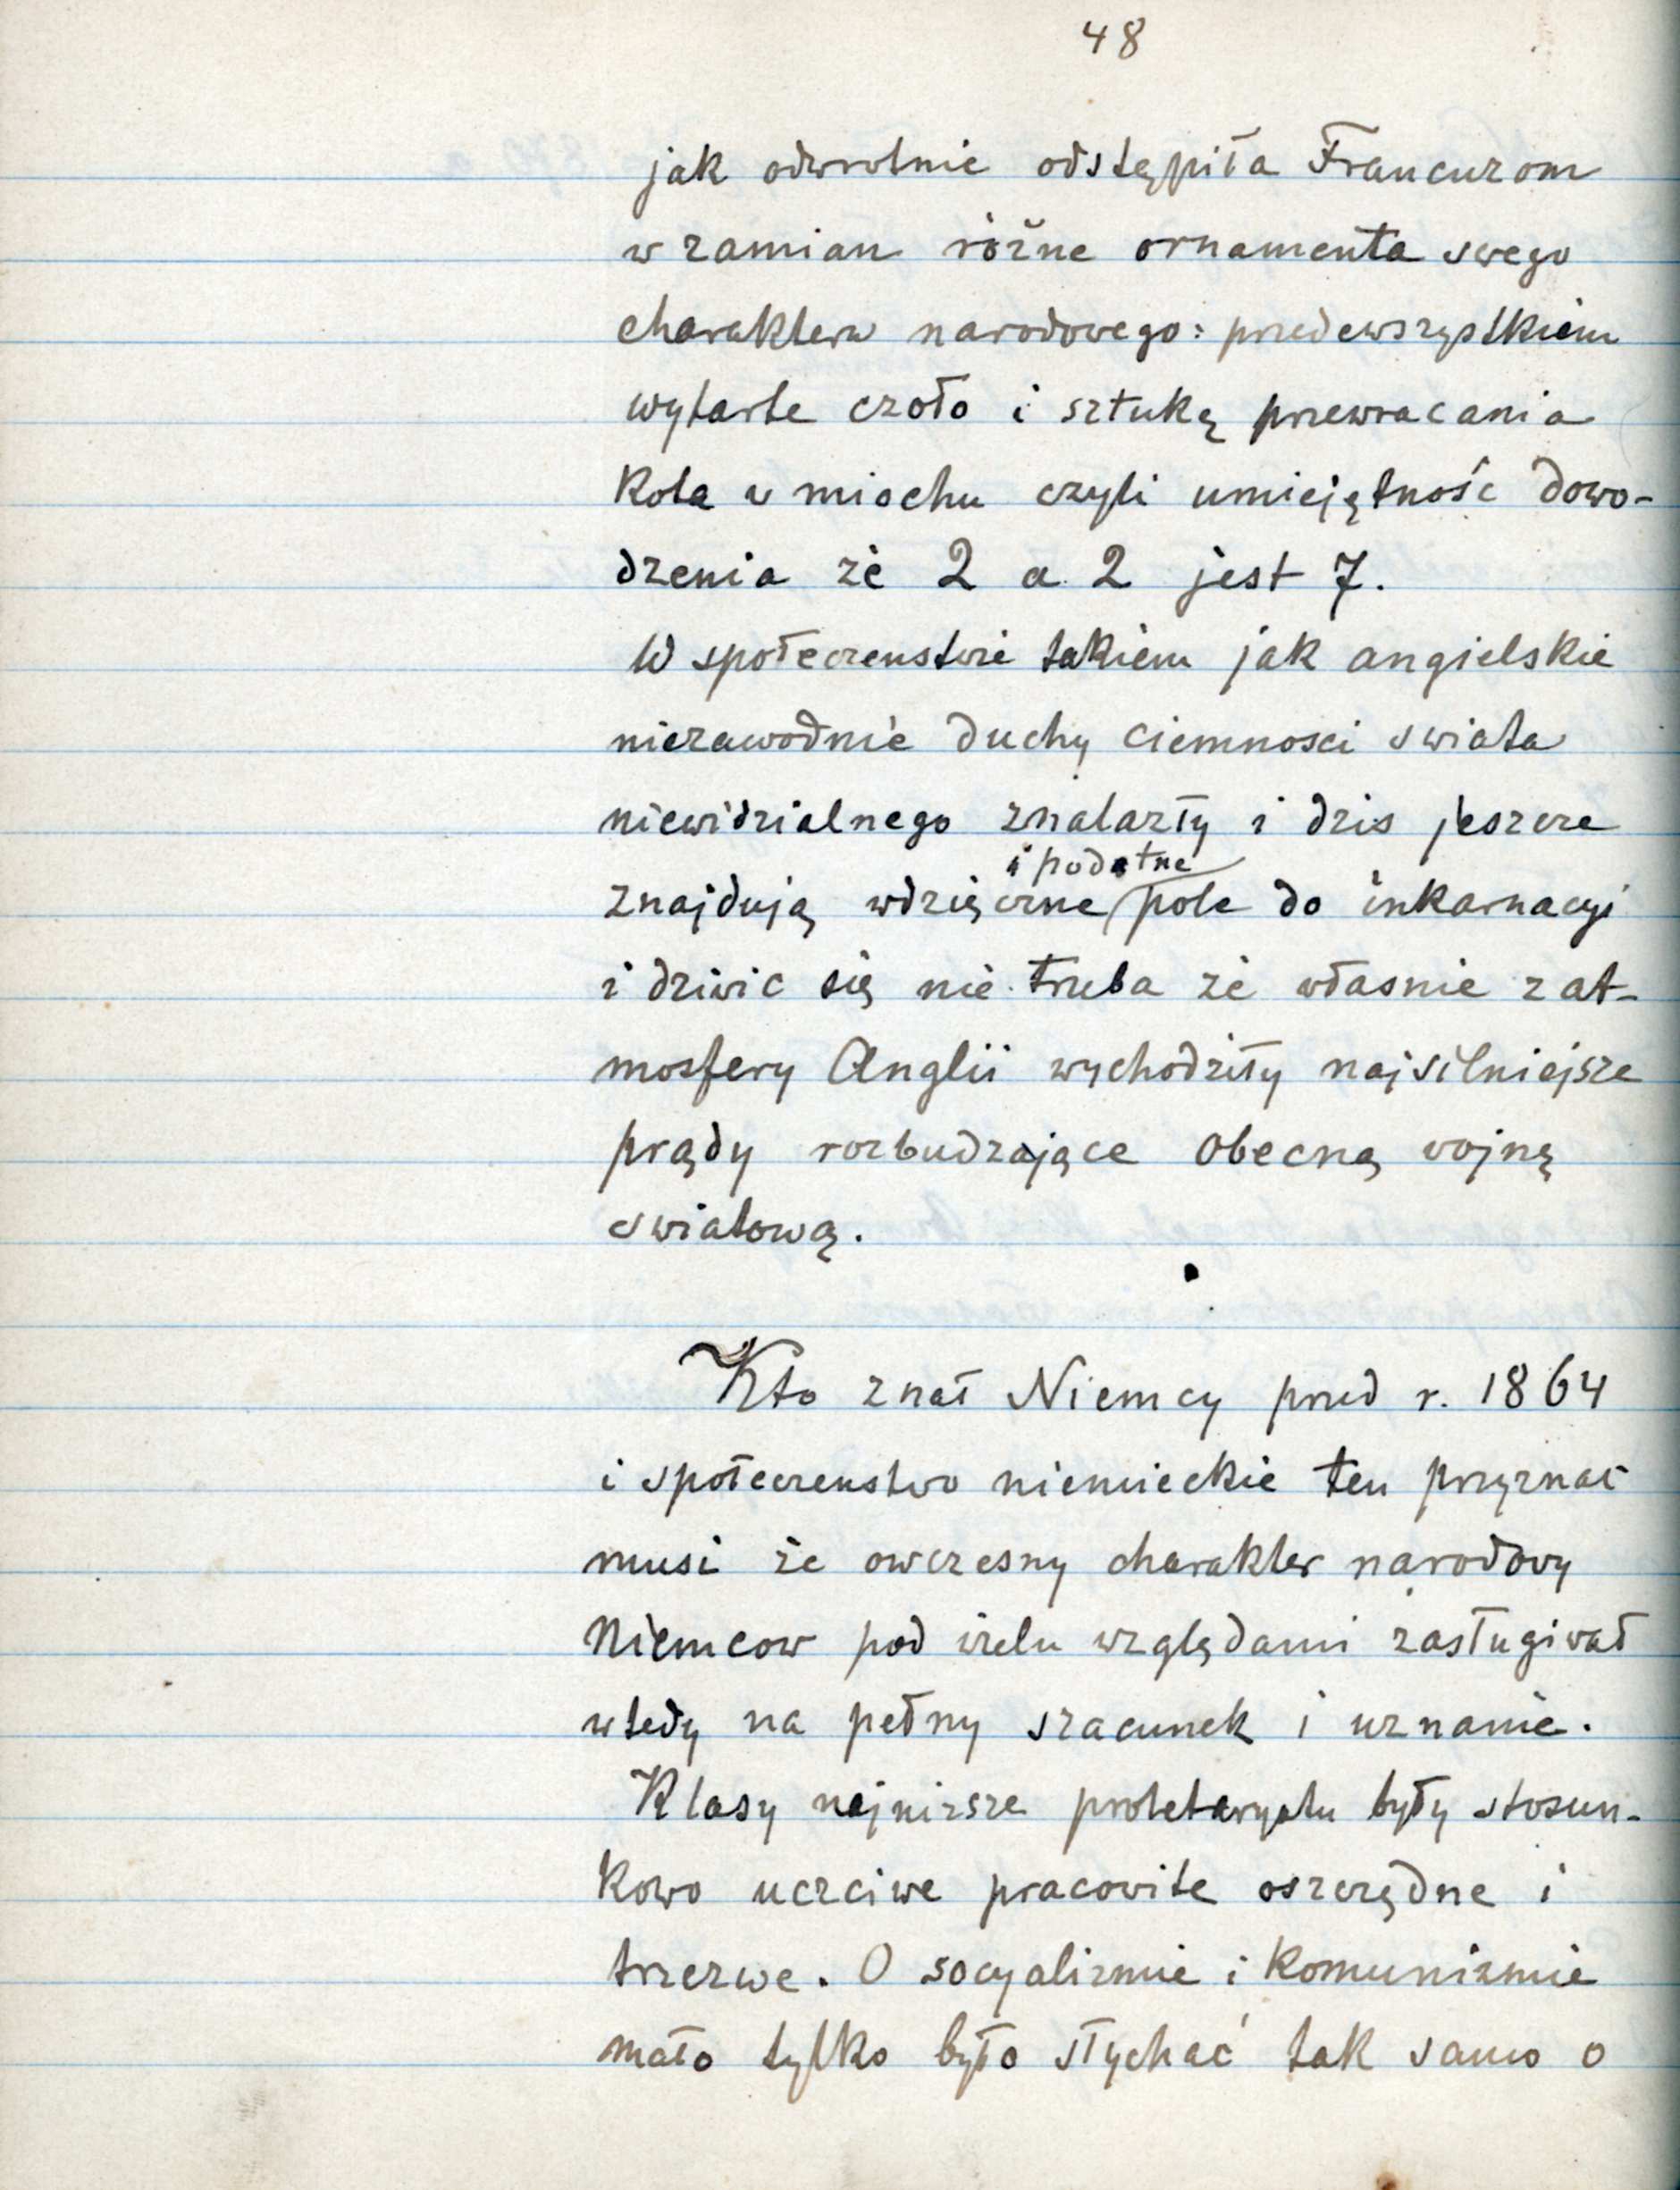 48
jak odwrotnie odstępiła Francuzom
w zamian różne ornamenta swego
charakteru narodowego: przedewszystkiem
wytarte czoło i sztukę przewracania
kota w miechu czyli umiejętność dowo-
dzenia że 2 a 2 jest 7.
W społeczenstwie takiem jak angielskie
niezawodnie duchy ciemnosci swiata
niewidzialnego znalazły i dzis jeszcze
i podatne
znajdują wdzięczne pole do inkarnacyi
i dziwic się nie trzeba że własnie z at-
mosfery Anglii wychodziły najsilniejsze
prądy rozbudzające obecną wojnę
swiatową.
Kto znał Niemcy przed r. 1864
i społeczenstwo niemieckie ten przyznac
musi że owczesny charakter narodowy
Niemcow pod wielu względami zasługiwał
wtedy na pełny szacunek i uznanie.
Klasy najnizsze proletaryatu były stosun-
kowo uczciwe pracowite oszczędne i
trzezwe. O socyalizmie i komunizmie
mało tylko było słychać tak samo o